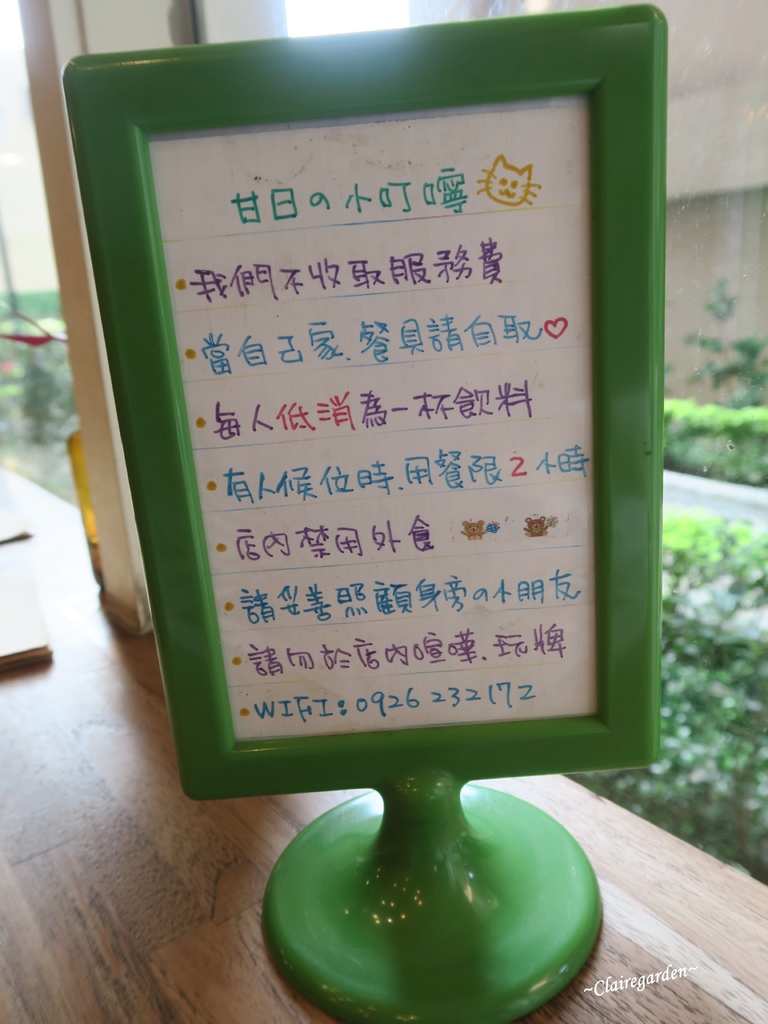 甘日の小叮嚀
•我們不收取服務費
•當自己家、餐具請自取♡
•每人低消為一杯飲料
•有人候位時、用餐限2小時
•店內禁用外食
•請妥善照顧身旁の小朋友
•請勿於店內喧嘩、玩牌
•WIFI:0926232172
~Clairegarden~